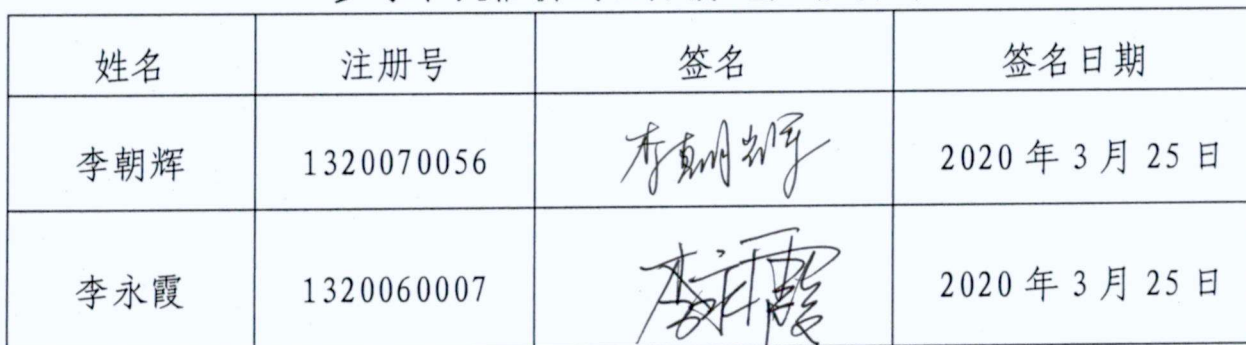 姓名 注册号 签名 签名日期
李朝辉 1320070056 李朝辉 2020年3月25日
李永霞 1320060007 李永霞 2020年3月25日